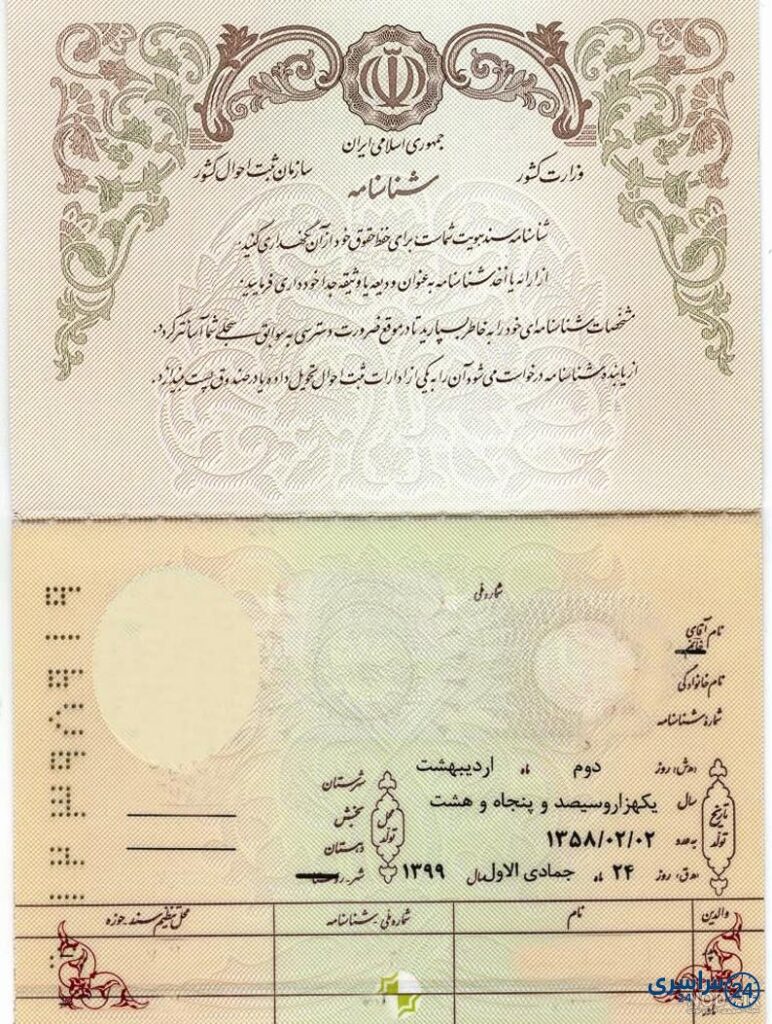 جمهوری اسلامی ایران
وزارت کشور
سازمان ثبت احوال کشور
شناسنامه
شناسنامه سند هویت شماست برای حفظ حقوق خود از آن نگهداری کنید.
از ارائه یا أخذ شناسنامه به عنوان ودیعه یا وثیقه جدا خودداری فرمایید.
مشخصات شناسنامه‌ای خود را به خاطر بسپارید تا در موقع ضرورت دسترسی به سوابق سجلی شما آسانتر گردد.
از یابنده شناسنامه درخواست می‌شود آن را به یکی از ادارات ثبت احوال تحویل داده یا در صندوق پست بیندازد.
شماره ملی
نام آقای
خانم
نام خانوادگی
شماره شناسنامه
تاریخ تولد
روز دوم ماه اردیبهشت
سال یکهزاروسیصد و پنجاه و هشت
به عدد ۱۳۵۸/۰۲/۰۲
روز ۲۴ ماه جمادی الاول سال ۱۳۹۹
محل تولد
شهرستان
بخش
دهستان
شهر
والدین
نام
شماره ملی - شناسنامه
محل تنظیم سند - حوزه
پدر
مادر
سراسری
24